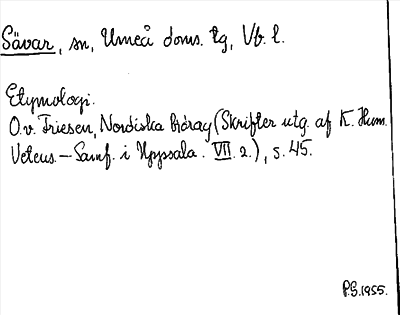 Sävar, sn, Umeå doms. tg, Vb. l.
Etymologi.
O.v. Friesen, Nordiska biörag (Skrifter utg. af K. Hum.
Vetens.-Samf. i Uppsala. VII. 2.), s. 45.
P.G. 1955.